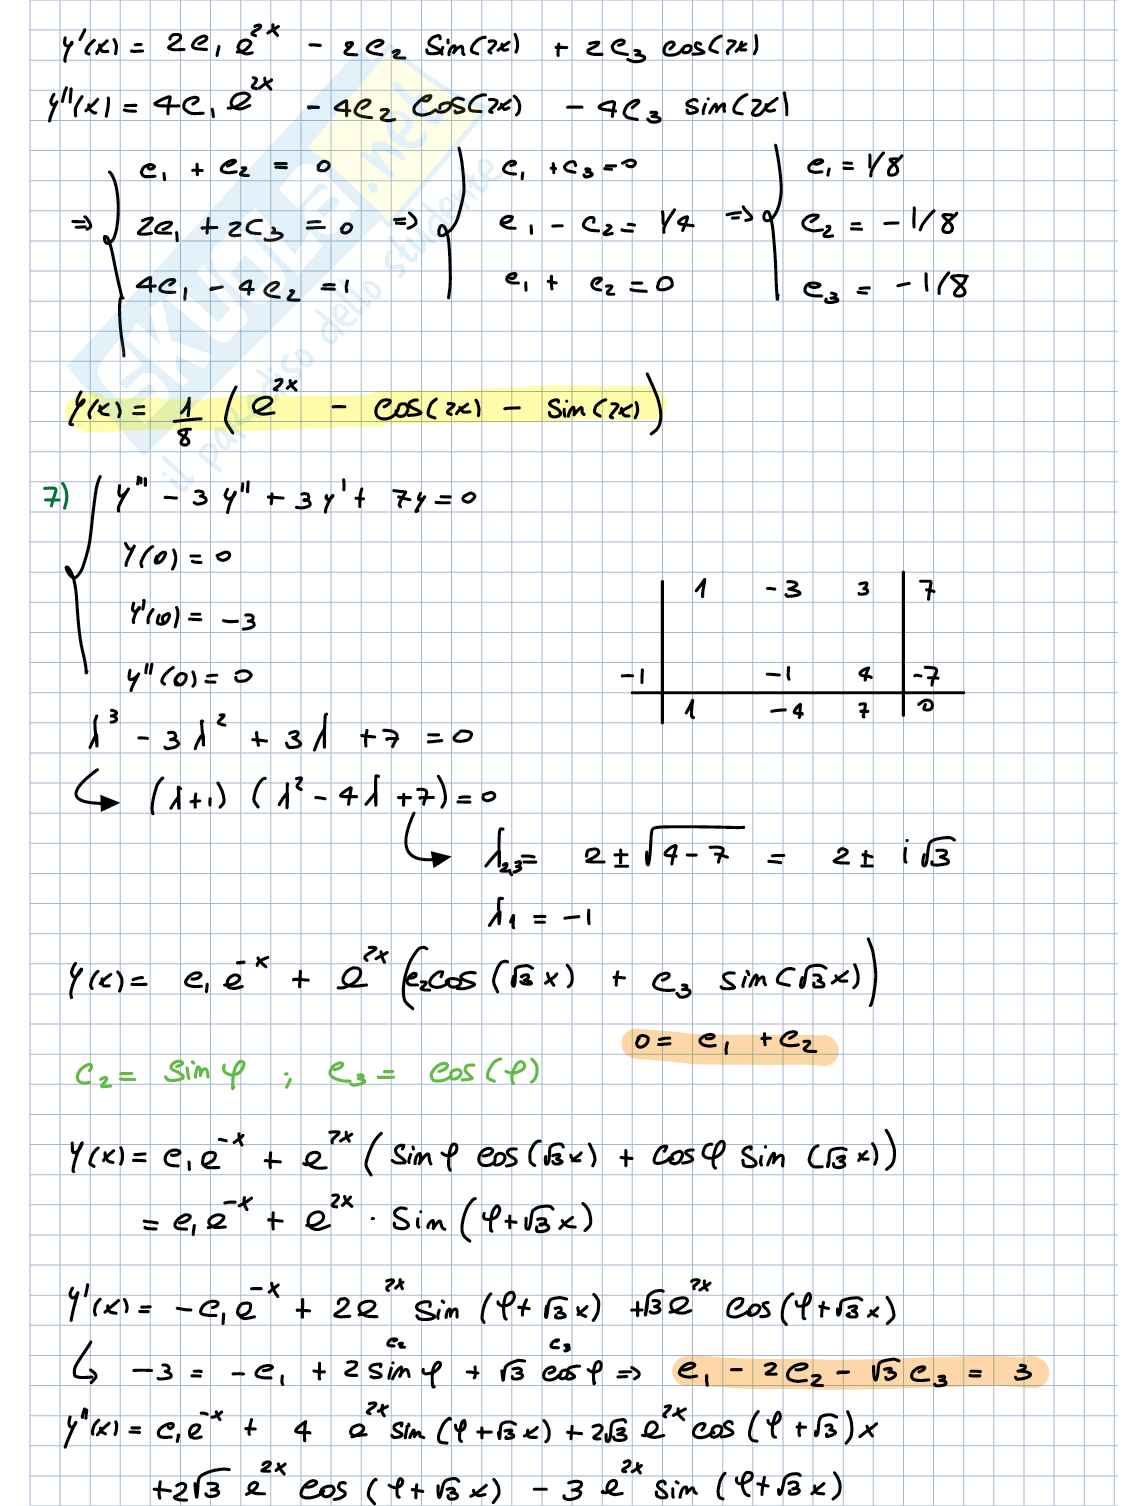 y'(x) = 2c₁ e^2x - 2c₂ sin(2x) + 2c₃ cos(2x)
y''(x) = 4c₁ e^2x - 4c₂ cos(2x) - 4c₃ sin(2x)
c₁ + c₂ = 0 c₁ + c₃ = 0 c₁ = 1/8
=> { 2c₁ + 2c₃ = 0 => { c₁ - c₂ = 1/4 => { c₂ = -1/8
4c₁ - 4c₂ = 1 c₁ + c₂ = 0 c₃ = -1/8
y(x) = 1/8 ( e^2x - cos(2x) - sin(2x) )
SKUOLA.net
il paradiso dello studente
7) { y''' - 3y'' + 3y' + 7y = 0
y(0) = 0
y'(0) = -3
y''(0) = 0
1 -3 3 | 7
-1 | -1 4 | -7
1 -4 7 | 0
λ³ - 3λ² + 3λ + 7 = 0
↳ (λ+1) (λ² - 4λ + 7) = 0
↳ λ₂,₃ = 2 ± √(4-7) = 2 ± i√3
λ₁ = -1
y(x) = c₁ e^-x + e^2x (c₂ cos(√3 x) + c₃ sin(√3 x))
0 = c₁ + c₂
c₂ = sin φ ; c₃ = cos(φ)
y(x) = c₁ e^-x + e^2x (sin φ cos(√3 x) + cos φ sin(√3 x))
= c₁ e^-x + e^2x · sin(φ+√3 x)
y'(x) = -c₁ e^-x + 2e^2x sin(φ+√3 x) + √3 e^2x cos(φ+√3 x)
c₂ c₃
↳ -3 = -c₁ + 2 sin φ + √3 cos φ => c₁ - 2c₂ - √3 c₃ = 3
y''(x) = c₁ e^-x + 4 e^2x sin(φ+√3 x) + 2√3 e^2x cos(φ+√3)x
+2√3 e^2x cos(φ+√3 x) - 3 e^2x sin(φ+√3 x)